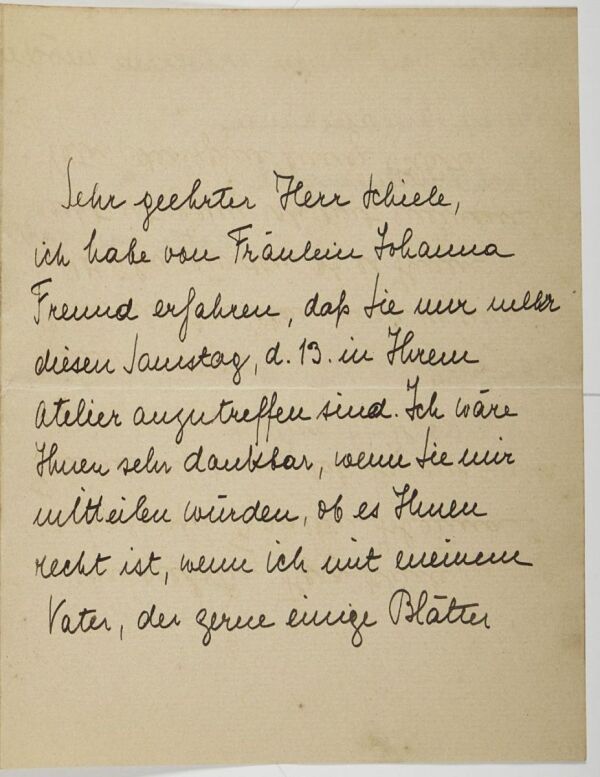 Sehr geehrter Herr Schiele,
ich habe von Fräulein Johanna
Freund erfahren, daß Sie nur mehr
diesen Samstag, d. 13. in Ihrem
Atelier anzutreffen sind. Ich wäre
Ihnen sehr dankbar, wenn Sie mir
mitteilen würden, ob es Ihnen
recht ist, wenn ich mit meinem
Vater, der gerne einige Blätter